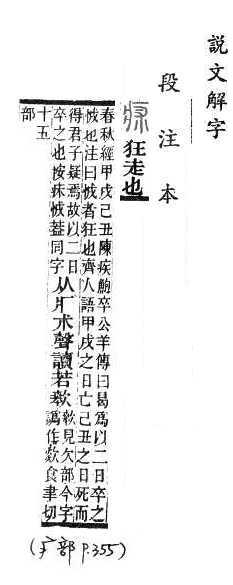 說文解字
段注本
狂走也
春秋經甲戌己丑陳矦鮑卒公羊傳曰曷爲以二日卒之
怴也注曰怴者狂也齊人語甲戌之日亡己丑之日死而
得君子疑焉故以二日
卒之也按怴蓋同字
从疒朮聲讀若欻
欻見欠部今字
譌作歘食聿切
十五
部
(疒部 P.355)